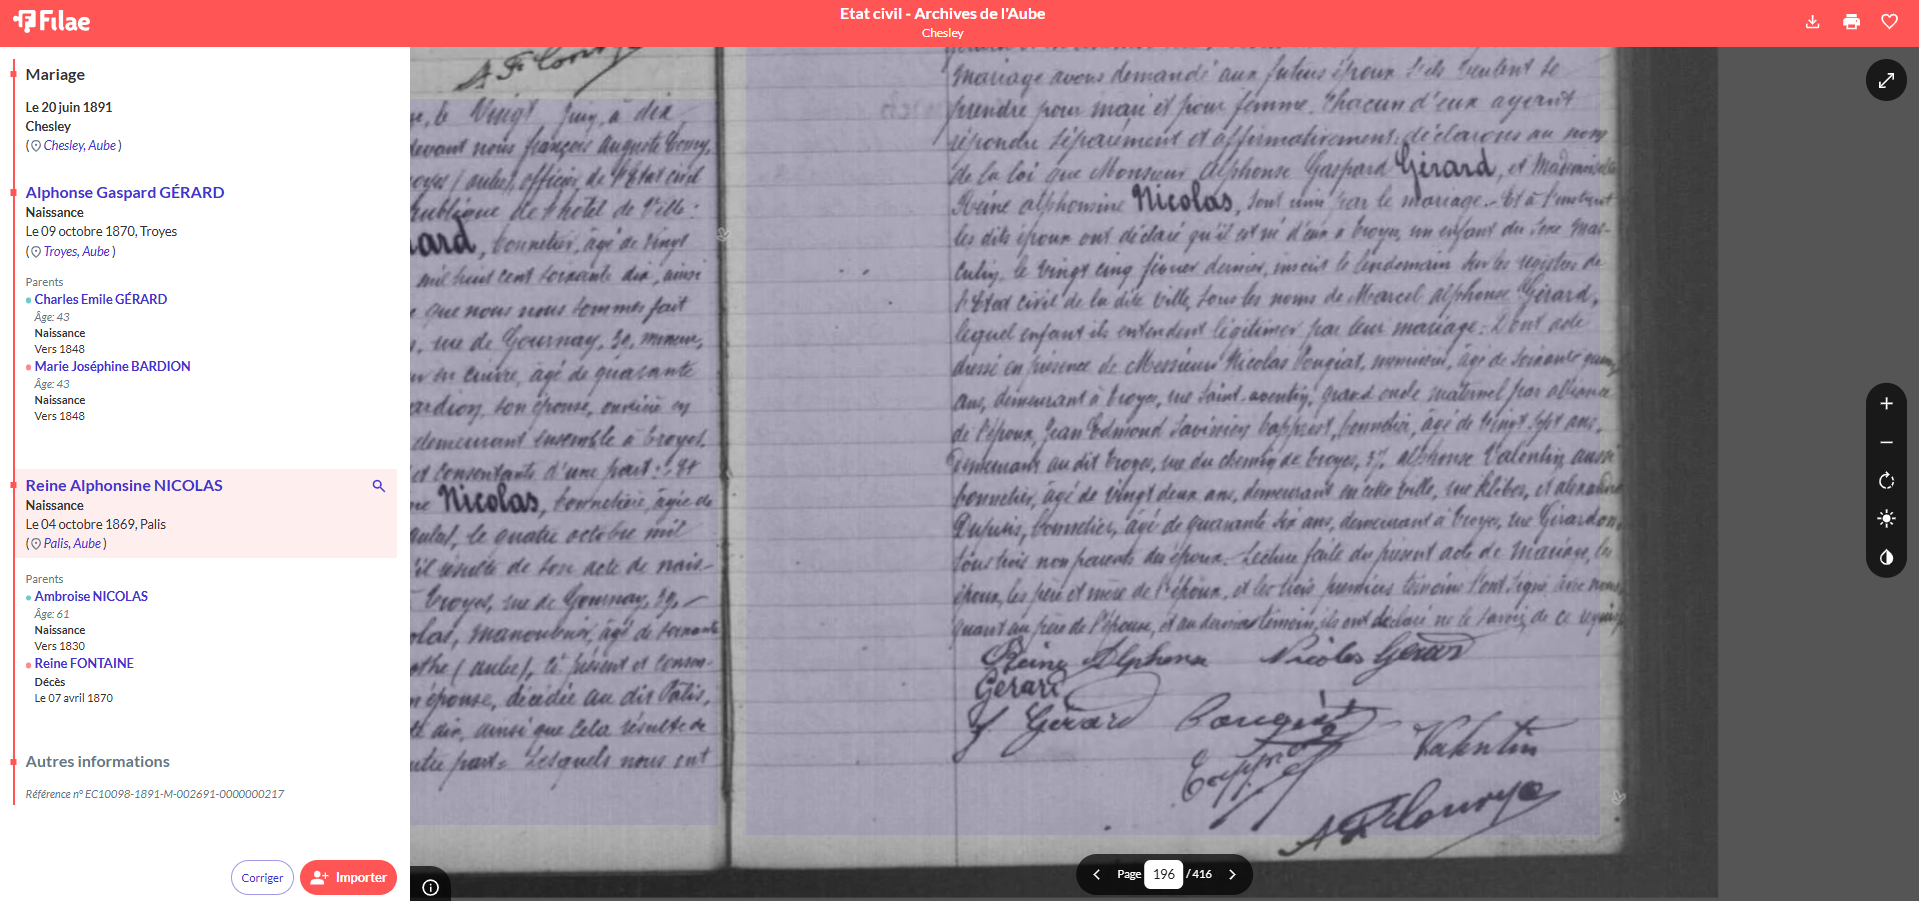 Filae
Etat civil - Archives de l'Aube
Chesley
Mariage
Le 20 juin 1891
Chesley
( Chesley, Aube )
Alphonse Gaspard GÉRARD
Naissance
Le 09 octobre 1870, Troyes
( Troyes, Aube )
Parents
Charles Emile GÉRARD
Âge: 43
Naissance
Vers 1848
Marie Joséphine BARDION
Âge: 43
Naissance
Vers 1848
Reine Alphonsine NICOLAS
Naissance
Le 04 octobre 1869, Palis
( Palis, Aube )
Parents
Ambroise NICOLAS
Âge: 61
Naissance
Vers 1830
Reine FONTAINE
Décès
Le 07 avril 1870
Autres informations
Référence n° EC10098-1891-M-002691-0000000217
Corriger
Importer
le Vingt Juin, à dix
devant nous françois Auguste
officier de l'Etat civil
publique de l'hôtel de Ville :
ard, bonnetier, âgé de vingt
mil huit cent soixante dix, ainsi
que nous nous sommes fait
rue de Gournay, 39, mineur,
en cuivre, âgé de quarante
ardion, son épouse, ouvrière en
demeurant ensemble à Troyes,
et consentants d'une part ; Et
Nicolas, bonnetière, âgée de
le quatre octobre mil
il résulte de son acte de nais-
Troyes, rue de Gournay, 39,
olas, manouvrier, âgé de soixante
(aube), ci présent et consen-
épouse, décédée au dit Palis,
dix, ainsi que cela résulte de
autre part. Lesquels nous ont
mariage avons demandé aux futurs époux s'ils veulent se
prendre pour mari et pour femme. Chacun d'eux ayant
répondu séparément et affirmativement, déclarons au nom
de la loi que Monsieur Alphonse Gaspard Gérard, et Mademoiselle
Reine Alphonsine Nicolas, sont unis par le mariage. Et à l'instant
les dits époux ont déclaré qu'il est né d'eux à Troyes, un enfant du sexe mas-
culin, le vingt cinq février dernier, inscrit le lendemain sur les registres de
l'Etat civil de la dite ville, sous les noms de Marcel Alphonse Gérard,
lequel enfant ils entendent légitimer par leur mariage. Dont acte
dressé en présence de Messieurs Nicolas Bougiat, menuisier, âgé de soixante
ans, demeurant à Troyes, rue Saint-Aventin, grand oncle maternel par alliance
de l'époux, Jean Edmond Savinien bonnetier, âgé de vingt sept ans,
demeurant au dit Troyes, rue du chemin de Troyes, 37, Alphonse Valentin, aussi
bonnetier, âgé de vingt deux ans, demeurant en cette ville, rue Kléber, et Alexandre
Dupuis, bonnetier, âgé de quarante six ans, demeurant à Troyes, rue Girardon,
tous trois non parents des époux. Lecture faite du présent acte de mariage, les
époux, les père et mère de l'époux, et les trois premiers témoins l'ont signé avec nous,
quant au père de l'épouse, et au dernier témoin, ils ont déclaré ne le savoir, de ce requis.
Reine Alphonsi Nicolas Gérard
Gérard
J Gérard Bougiat
Valentin
Page 196 / 416